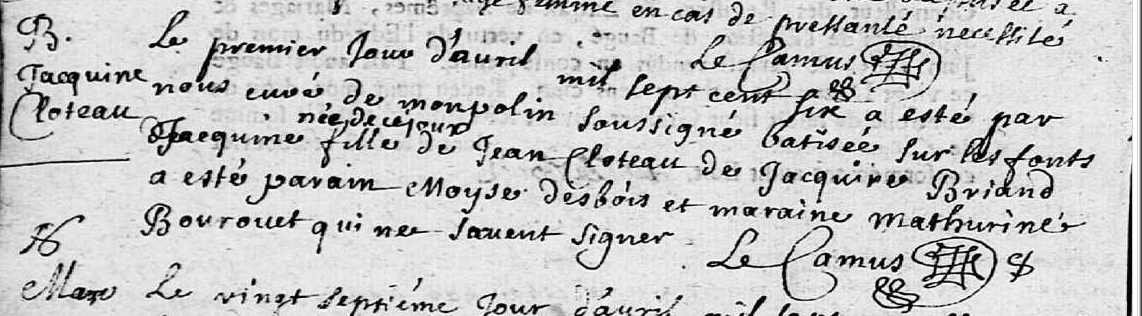 femme en cas de pressante nécessité
Le Camus
B.
Jacquine
Cloteau
Le premier Jour d'auril mil sept cent six a esté par
nous curé de monpolin soussigné batisée sur les fonts
née de ce jour
Jacquine fille de Jean Cloteau de Jacquine Briand
a esté parain Moyse desbois et maraine Mathurine
Bourouet qui ne sauent signer
Le Camus
Le vingt septiéme Jour d'auril mil sept